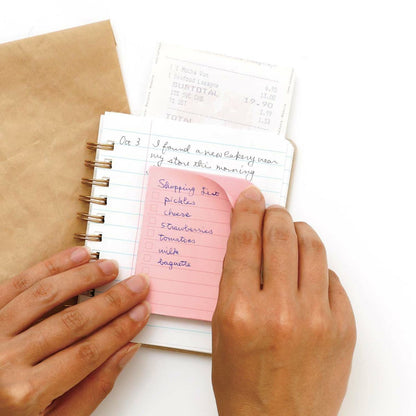 SUBTOTAL
19.90
TOTAL
Oct 3 I found a new bakery near
my store this morning
Shopping List
pickles
cheese
strawberries
tomatoes
milk
baguette